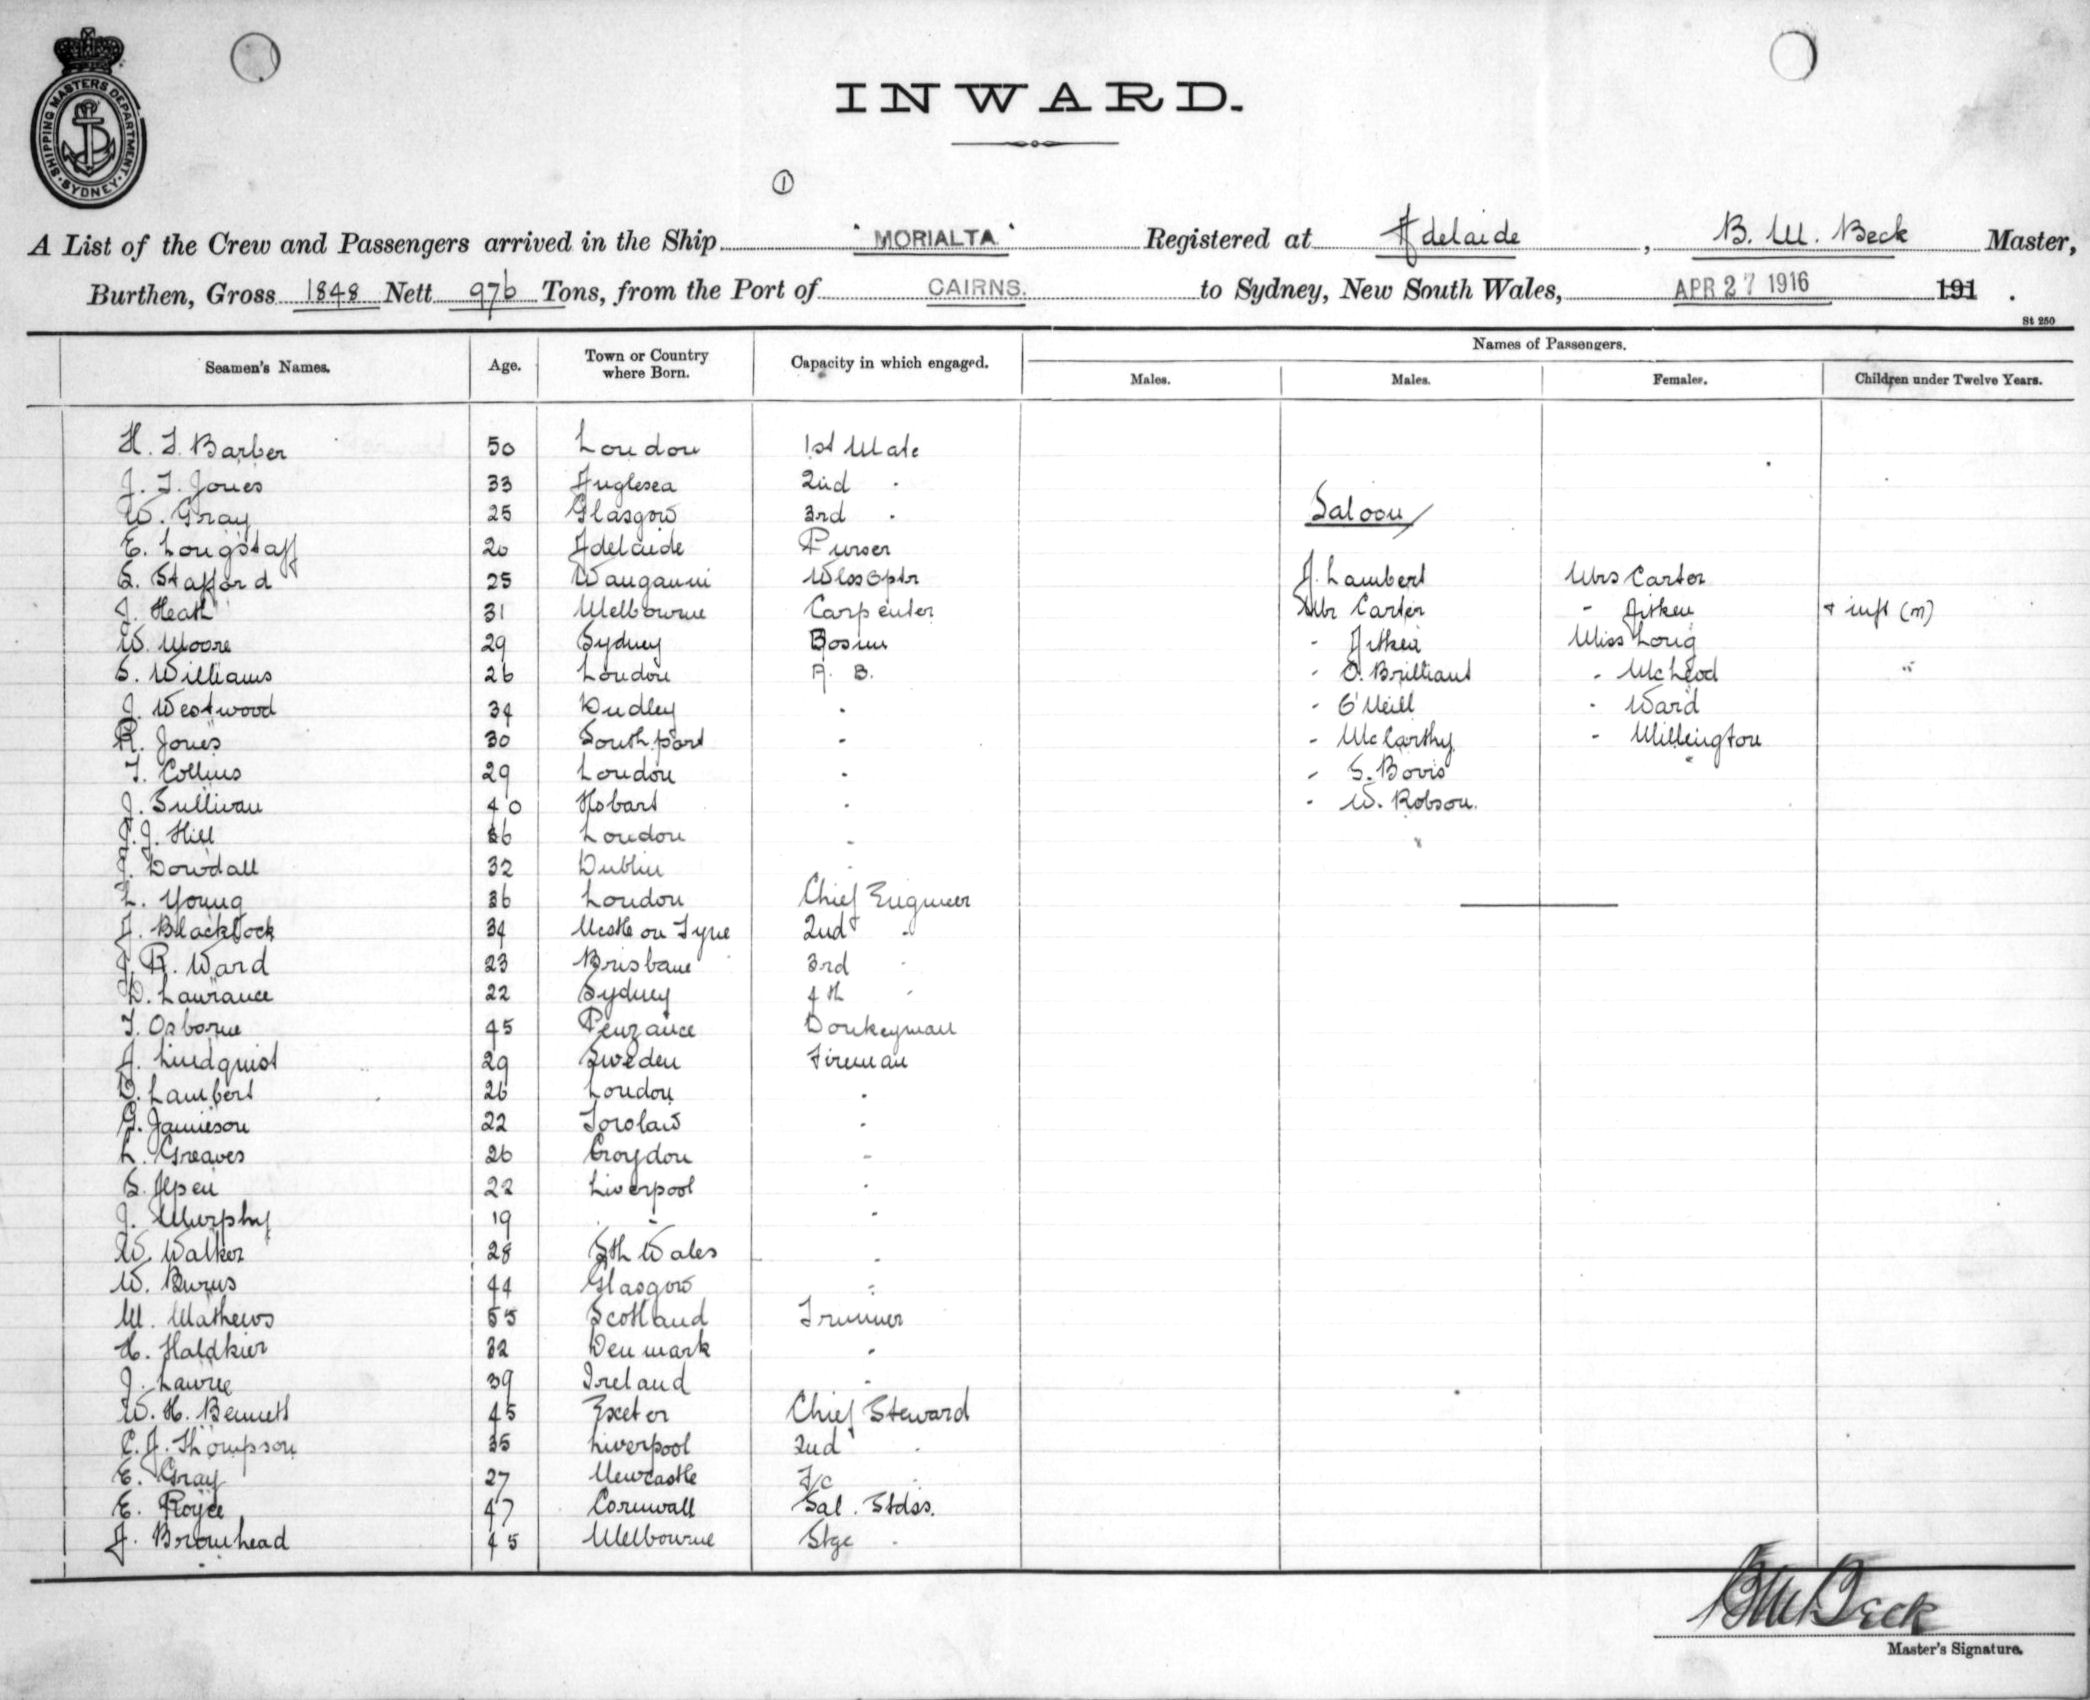 SHIPPING MASTERS DEPARTMENT
SYDNEY
INWARD.
1
A List of the Crew and Passengers arrived in the Ship "MORIALTA" Registered at Adelaide, B. M. Beck Master,
Burthen, Gross 1848 Nett 976 Tons, from the Port of CAIRNS. to Sydney, New South Wales, APR 27 1916 191 .
St 250
Seamen's Names. Age. Town or Country where Born. Capacity in which engaged. Names of Passengers.
Males. Males. Females. Children under Twelve Years.
H. J. Barber 50 London 1st Mate
J. T. Jones 33 Anglesea 2nd "
W. Gray 25 Glasgow 3rd " Saloon
E. Longstaff 20 Adelaide Purser
S. Stafford 25 Wanganui Wlss Optr A. Lambert Mrs Carter
J. Heath 31 Melbourne Carpenter Mr Carter " Aitken & inft (m)
W. Moore 29 Sydney Bosun " Aitken Miss Long
S. Williams 26 London A. B. " O. Brilliant " McLeod "
J. Westwood 34 Dudley " " O'Neill " Ward
R. Jones 30 Southport " " McCarthy " Millington
T. Collins 29 London " " S. Bovis
J. Sullivan 40 Hobart " " W. Robson.
J. J. Hill London "
J. Dowdall 32 Dublin "
L. Young 36 London Chief Engineer
J. Blacklock 34 Ncstle on Tyne 2nd "
J. R. Ward 23 Brisbane 3rd "
D. Laurance 22 Sydney 4th "
T. Osborne 45 Penzance Donkeyman
A. Lindquist 29 Sweden Fireman
D. Lambert 26 London "
G. Jamieson 22 "
L. Greaves 26 Croydon "
S. Alpen 22 Liverpool "
J. Murphy 19 " "
W. Walker 28 Sth Wales "
W. Burns 44 Glasgow "
M. Mathews 55 Scotland Trimmer
H. Haldkier 32 Denmark "
J. Lawrie 39 Ireland "
W. H. Bennett 45 Exeter Chief Steward
C. J. Thompson 35 Liverpool 2nd "
E. Gray 27 Newcastle F/c "
E. Royce 47 Cornwall Sal. Stdss.
J. Bromhead 45 Melbourne Stge "
B M Beck
Master's Signature.